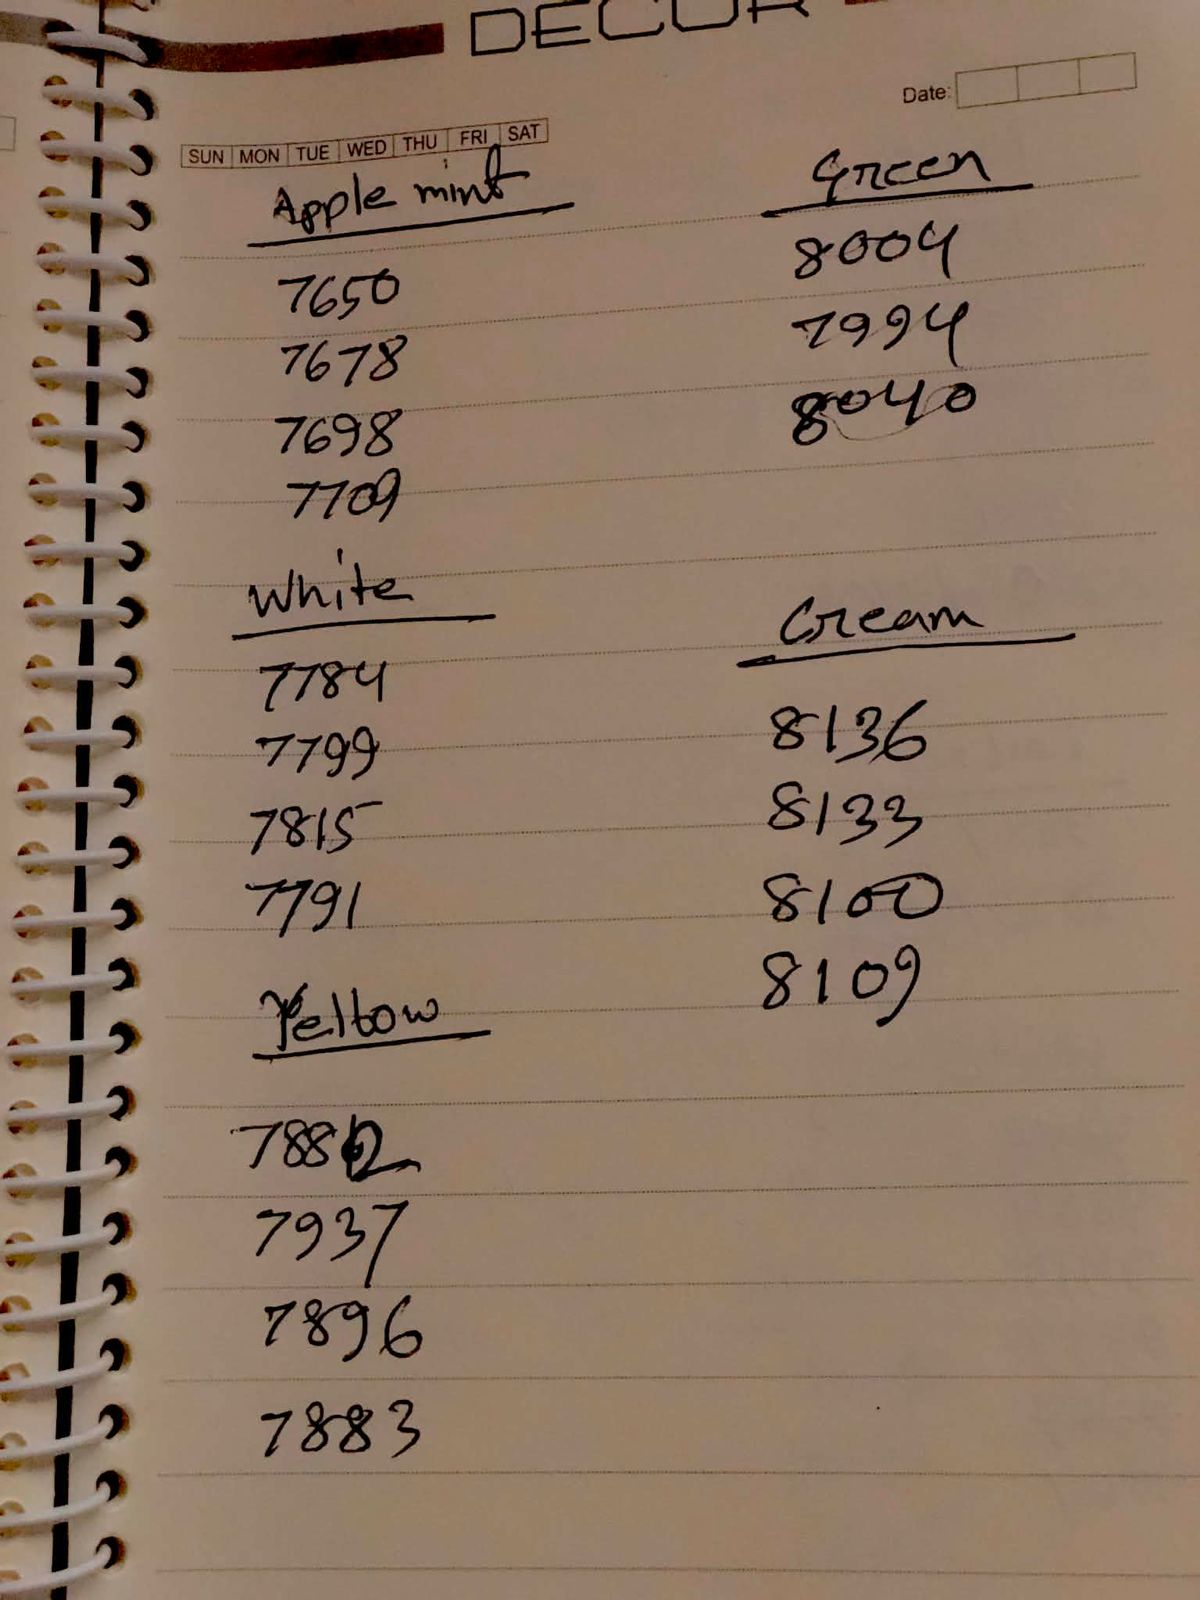 DECOR
Date:
SUN MON TUE WED THU FRI SAT
Apple mint
7650
7678
7698
7709
White
7784
7799
7815
7791
Yellow
7882
7937
7896
7883
Green
8004
7994
8040
Cream
8136
8133
8100
8109